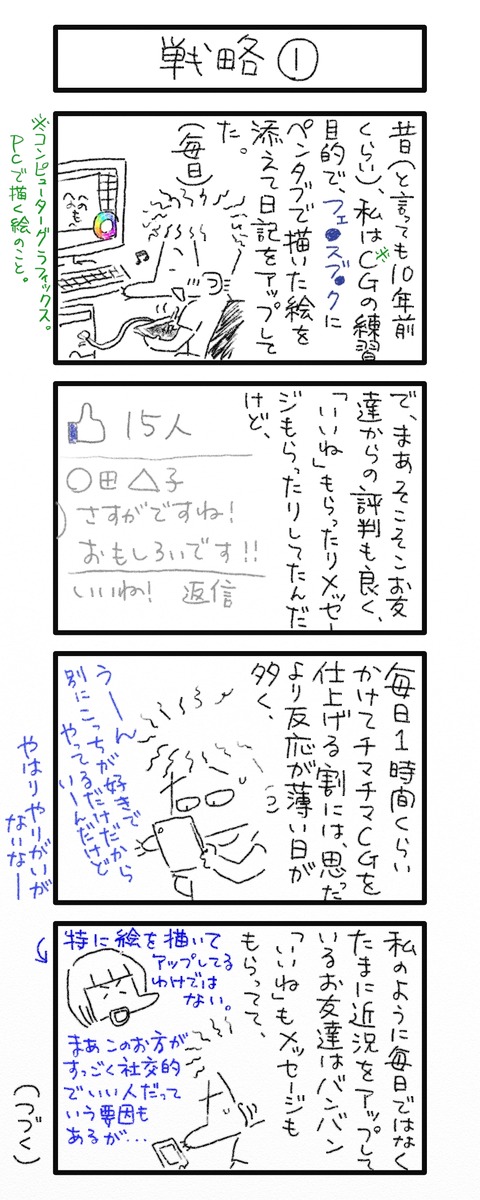 戦略①
昔(と言っても10年前
くらい)、私は※CGの練習
目的で、フェ●スブ●クに
ペンタブで描いた絵を
添えて日記をアップして
た。
(毎日)
へのへのも
※コンピューターグラフィックス。
PCで描く絵のこと。
で、まあそこそこお友
達からの評判も良く、
「いいね」もらったりメッセー
ジもらったりしてたんだ
けど、
15人
○田△子
さすがですね!
おもしろいです!!
いいね! 返信
毎日1時間くらい
かけてチマチマCGを
仕上げる割には、思った
より反応が薄い日が
多く、
うーーん
別にこっちが好きで
やってるだけだから
いーんだけど
やはりやりがいが
ないなー
私のように毎日ではなく
たまに近況をアップして
いるお友達はバンバン
「いいね」もメッセージも
もらってて、
特に絵を描いて
アップしてる
わけでは
ない。
まあこのお方が
すっごく社交的
でいい人だって
いう要因も
あるが…
(つづく)